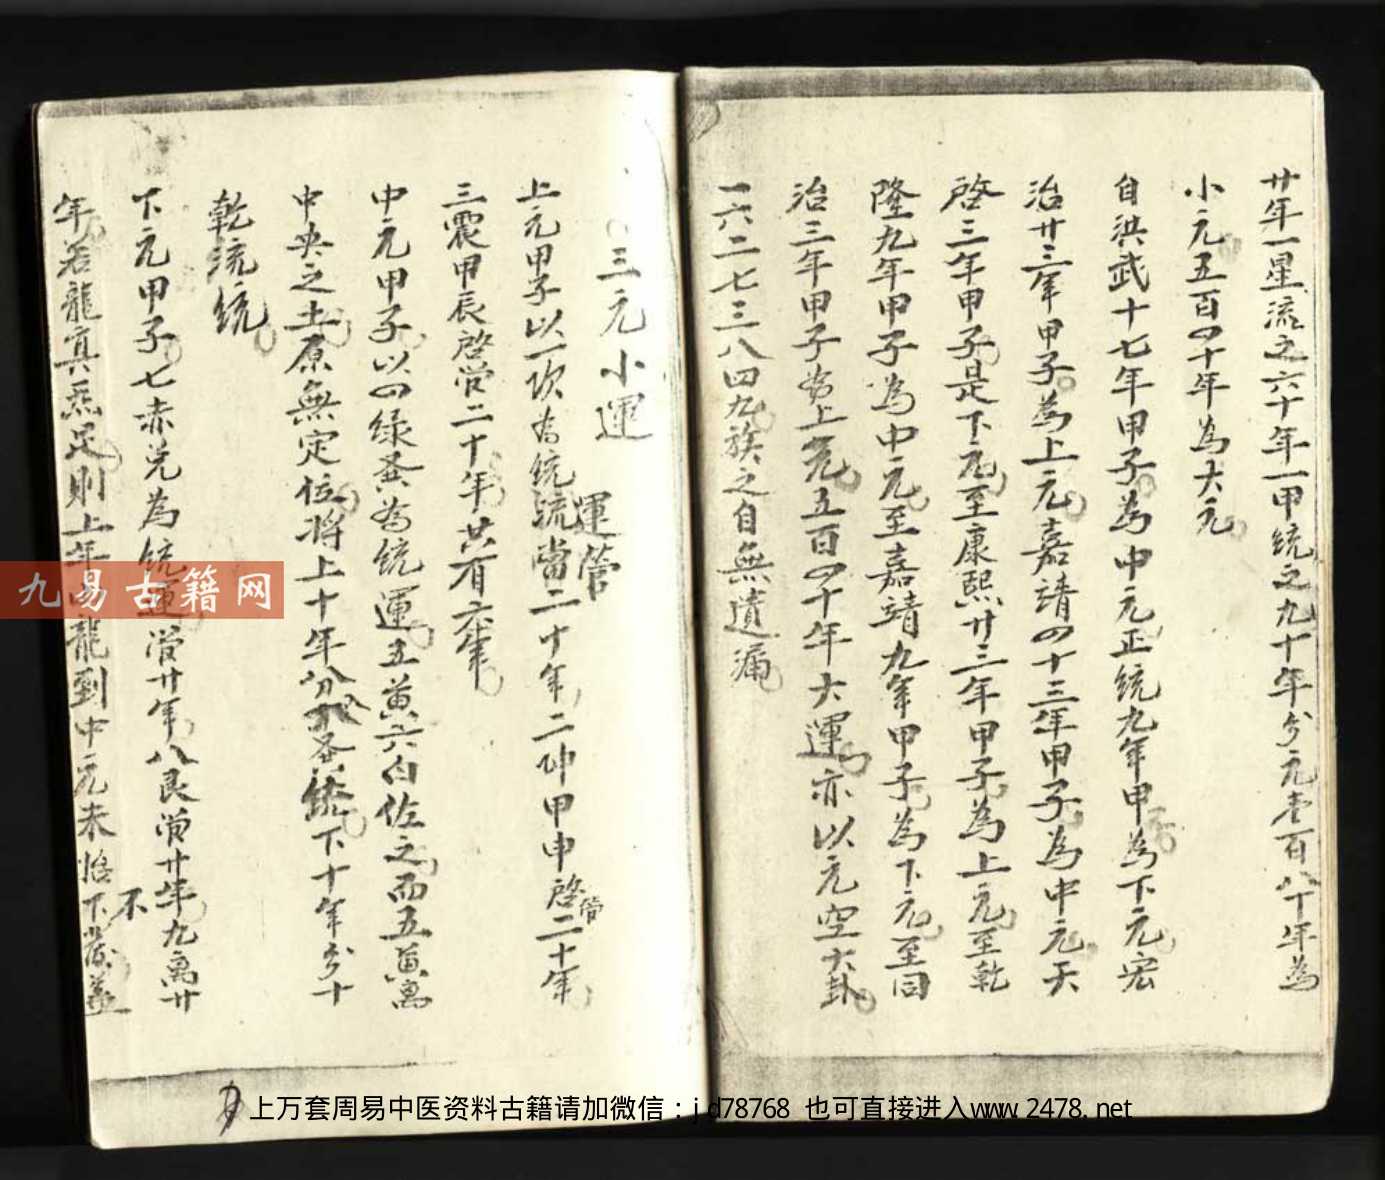 廿年一星流之六十年一甲統之九十年分元壱百八十年為
小元五百四十年為大元
自洪武十七年甲子為中元正統九年甲子為下元宏
治廿三年甲子為上元嘉靖四十三年甲子為中元天
啓三年甲子是下元至康熙廿三年甲子為上元至乾
隆九年甲子為中元至嘉靖九年甲子為下元至同
治三年甲子為上元五百四十年大運亦以元空大卦
一六二七三八四九族之自無遺漏
三元小運
運管
上元甲子以一次為統統當二十年二坤甲申啓管二十年
三震甲辰啓管二十年共有六年
中元甲子以四綠為統運五黃六白佐之而五黃寓
中央之土原無定位將上十年分統下十年分十
乾統統
下元甲子七赤兌為統運管廿年八艮管廿年九离廿
年若龍真炁足則上年龍到中元未临下不
九易古籍网
上万套周易中医资料古籍请加微信：jd78768 也可直接进入www.2478.net